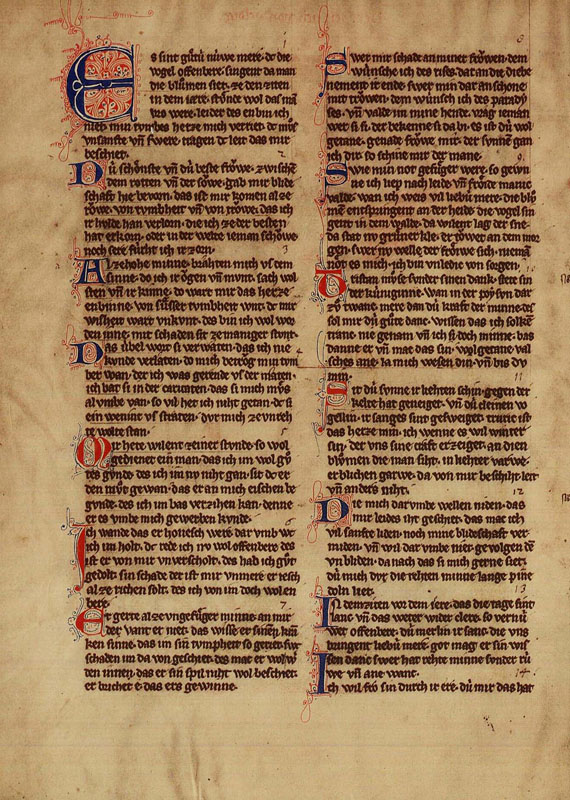 Es sint gůtú núwe mere · dc die
vogel offenbere · singent da man
die blůmen siet · zê den ziten
in dem iare · stůnde wol das mā
vro were · leider des en bin ich
niet · min tvmbes herze mich verriet · dc můs
vnsanfte vn̄ swere · tragen dc leit das mir
beschiet ·
Dú schônste vn̄ dú beste frôwe · zwischē
dem rotten vn̄ der sôwe · gab mir blide
schaft hie bevorn · das ist mir komen al ze
rôwe · von tvmpheit vn̄ von trôwe · das ich
ir holde han verlorn · die ich ze der besten
hat erkorn · oder in der welte ieman schôwe
noch sere fúrhte ich ir zorn ·
Alze hohe minne · brahten mich vs dem
sinne · do ich ir ôgen vn̄ mvnt · sach wol
sten vn̄ ir kinne · do wart mir das herze
enbinne · von sûsser tvmpheit wnt · dc mir
wisheit wart vnkvnt · des bin ich wol wor
den inne · mit schaden sit ze maniger stvnt ·
Das úbel wort si verwaten · das ich nie
kvnde verlaten · do mich betrog min tvm
ber wan · der ich was gerende vs der maten ·
ich bat si in der caritaten · das si mich môs
al vmbe van · so vil het ich niht getan · dc si
ein wenic vs straten · dvr mich ze vnreh
te wolte stan ·
Mir hete wilent zeiner stvnde · so wol
gedienet ein man · das ich im wol gů
tes gvnde · des ich im nv niht gan · sit dc er
den můt gewan · das er an mich eischen be
gvnde · des ich im bas verzihen kan · denne
er es vmbe mich gewerben kvnde ·
Ich wande das er hovesch were · dar vmb wc
ich im holt · dc rede ich nv wol offenbere · des
ist er von mir vnverscholt · des had ich gůt
gedolt · sin schade der ist mir vnmere · er iesch
al ze richen solt · des ich von im doch wol en
bere ·
Er gerte al ze vngefůger minne · an mir
der vant er niet · das wisse er sinen krā
ken sinne · das im sin tvmpheit so geriet · swc
schaden im da von geschiet · des mac er wol wˢ
den innen · das er sin spil niht wol beschiet ·
er brichet e · das ers gewinne ·
Swer mir schade an miner frôwen · dem
wúnsche ich des rises · dar an die diebe
nement ir ende · swer min dar an schone
mit trôwen · dem wúnsch ich des paradȳ
ses · vn̄ valde im mine hende · vrag ieman
wer si si · der bekenne si da bi · es ist dú wol
getane · genade frôwe mir · der svnnē gan
ich dir · so schine mir der mane ·
Swie min not gefůger were · so gewū
ne ich liep nach leide vn̄ frôide manic
valde · wan ich weis vil liebú mere · die blů
men entspringent an der heide · die vogel sin
gent in dem walde · da wilent lag der sne ·
da stat nv grůner kle · er tôwet an dem mor
gen · swer nv welle der frôwe sich · nieman
not es mich · ich bin vnledic von sorgen ·
Tristan můse svnder sinen dank · stete sin
der kúniginne · wan in der poysvn dar
zv twanc · mere dan dú kraft der minne · des
sol mir dú gůte danc · wissen das ich solkē
tranc · nie genam vn̄ ich si doch minne · bas
danne er vn̄ mac das sin · wolgetane val
sches ane · la mich wesen din vn̄ bis dv
min ·
Sit dú svnne ir liehten schin · gegen der
kelte hat geneiget · vn̄ dú cleinen vo
gellin · ir sanges sint gesweiget · truric ist
das herze min · ich wenne es wil winter
sin · der vns sine craft erzeiget · an dien
blůmen die man siht · in liehter varwe ·
er blichen garwe · da von mir beschiht · leit
vn̄ anders niht ·
Die mich dar vmbe wellen niden · das
mir leides iht geschiet · das mac ich
vil sanfte liden · noch mine blideschaft ver
miden · vn̄ wil dar vmbe niet · gevolgen dē
vn bliden · da nach das si mich gerne siet ·
dú mich dvr die rehten minne lange pine
doln liet ·
In den ziten von dem iere · das die tage sint
lanc vn̄ das weter wider clere · so vernú
wet offenbere · dú merlin ir sanc · die vns
bringent liebú mere · got mag er sin wis
sen danc · swer hat rehte minne svnder rú
we vn̄ ane wanc ·
Ich wil frô sin durch ir ere · dú mir das hat